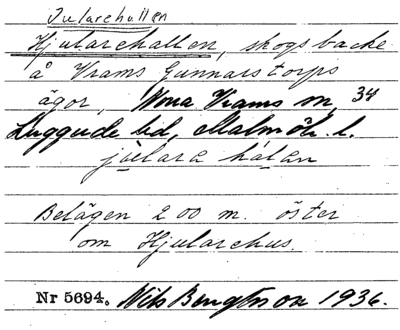 Jularehallen
Hjularehallen, skogsbacke
å Vrams Gunnarstorps
ägor, Norra Vrams sn, 34
Luggude hd, Malmöh. l.
Belägen 200 m. öster
om Hjularehus.
Nr 5694. Nils Bengtsson 1936.